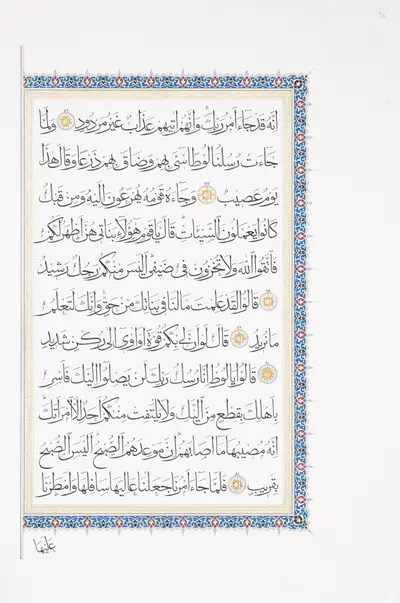 إنه قد جاء أمر ربك وإنهم آتيهم عذاب غير مردود ولما
جاءت رسلنا لوطا سيء بهم وضاق بهم ذرعا وقال هذا
يوم عصيب وجاءه قومه يهرعون إليه ومن قبل
كانوا يعملون السيئات قال يا قوم هؤلاء بناتي هن أطهر لكم
فاتقوا الله ولا تخزون في ضيفي أليس منكم رجل رشيد
قالوا لقد علمت ما لنا في بناتك من حق وإنك لتعلم
ما نريد قال لو أن لي بكم قوة أو آوي إلى ركن شديد
قالوا يا لوط إنا رسل ربك لن يصلوا إليك فأسر
بأهلك بقطع من الليل ولا يلتفت منكم أحد إلا امرأتك
إنه مصيبها ما أصابهم إن موعدهم الصبح أليس الصبح
بقريب فلما جاء أمرنا جعلنا عاليها سافلها وأمطرنا
عليها